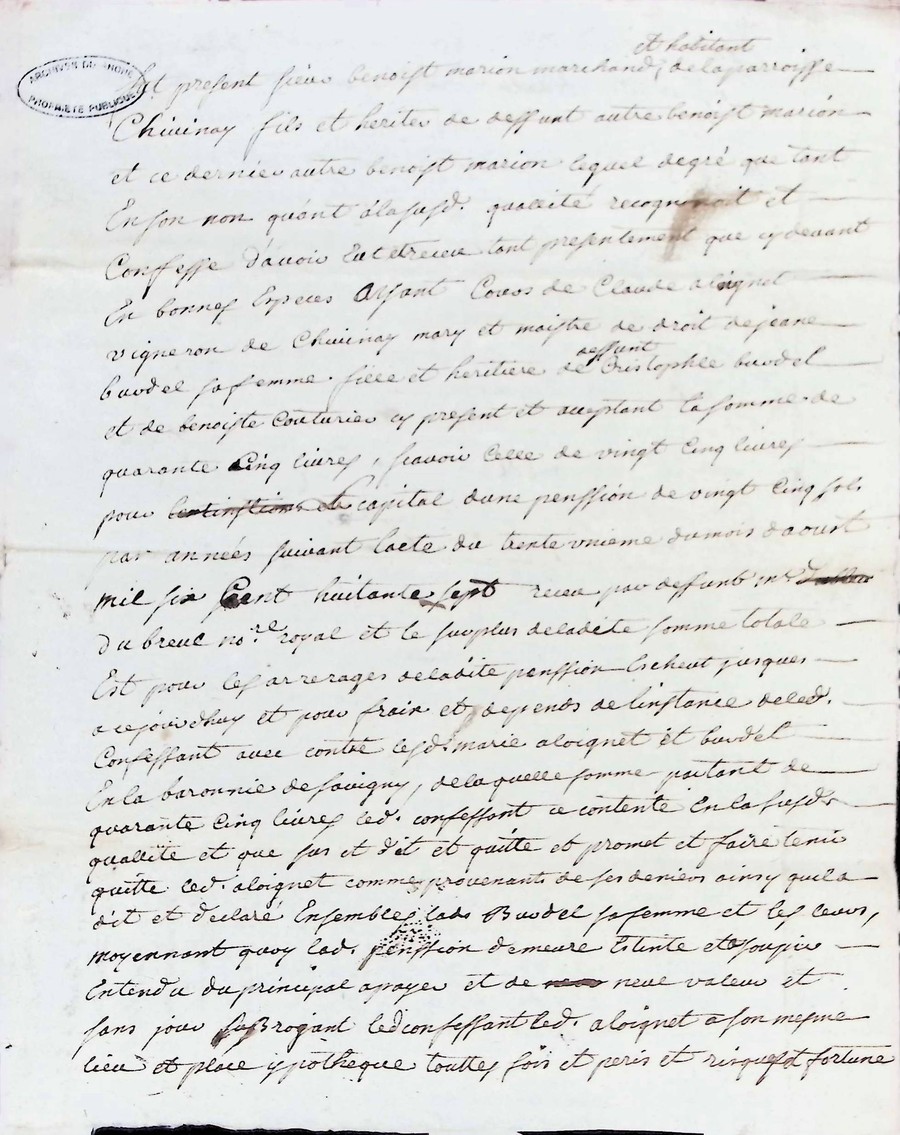 et habitant
ARCHIVES DU RHONE
PROPRIÉTÉ PUBLIQUE
Est present sieur benoist marion marchand, de la parroisse
Chivinay fils et heritier de deffunt autre benoist marion
et ce dernier autre benoist marion lequel degré que tant
En son non quant a la susd. quallité recognoit et
Confesse d'avoir Eut et receu tant presentement que cy devant
En bonnes Especes ayant Cours de Claude aloignet
vigneron de Chivinay mary et maistre de droit de jeane
burdel sa femme fille et heritiere de deffunt Cristophle burdel
et de benoiste Couturier cy present et acceptant la somme de
quarante Cinq livres, scavoir Celle de vingt Cinq livres
pour capital dune penssion de vingt Cinq sols
par années suivant lacte du trente vnieme du mois daoust
mil six Cent huitante sept receu par deffunt mr
Dubreuc nore. royal et le surplus de ladite somme totale
Est pour les arrerages de ladite penssion Escheut jusques
a ce jourdhuy et pour frair et depends de linstance de led.
Confessant avec contre lesd. marie aloignet et burdel
En la baronnie de savigny, de laquelle somme partant de
quarante Cinq livres led. confessant ce contente En la susd.
quallite et que sus et d'it et quitte et promet et faire tenir
quitte led. aloignet comme provenants de ses deniers ainsy quil a
dit et declaré Ensembles lad. Burdel sa femme et les leurs,
moyennant quoy lad. penssion demeure Estinte et
Entendu du principal a payer et de neue valeur et
sans jour suBrogant led confessant led. aloignet a son mesme
lieu et place ypotheque touttes fois et peris et risques et fortune